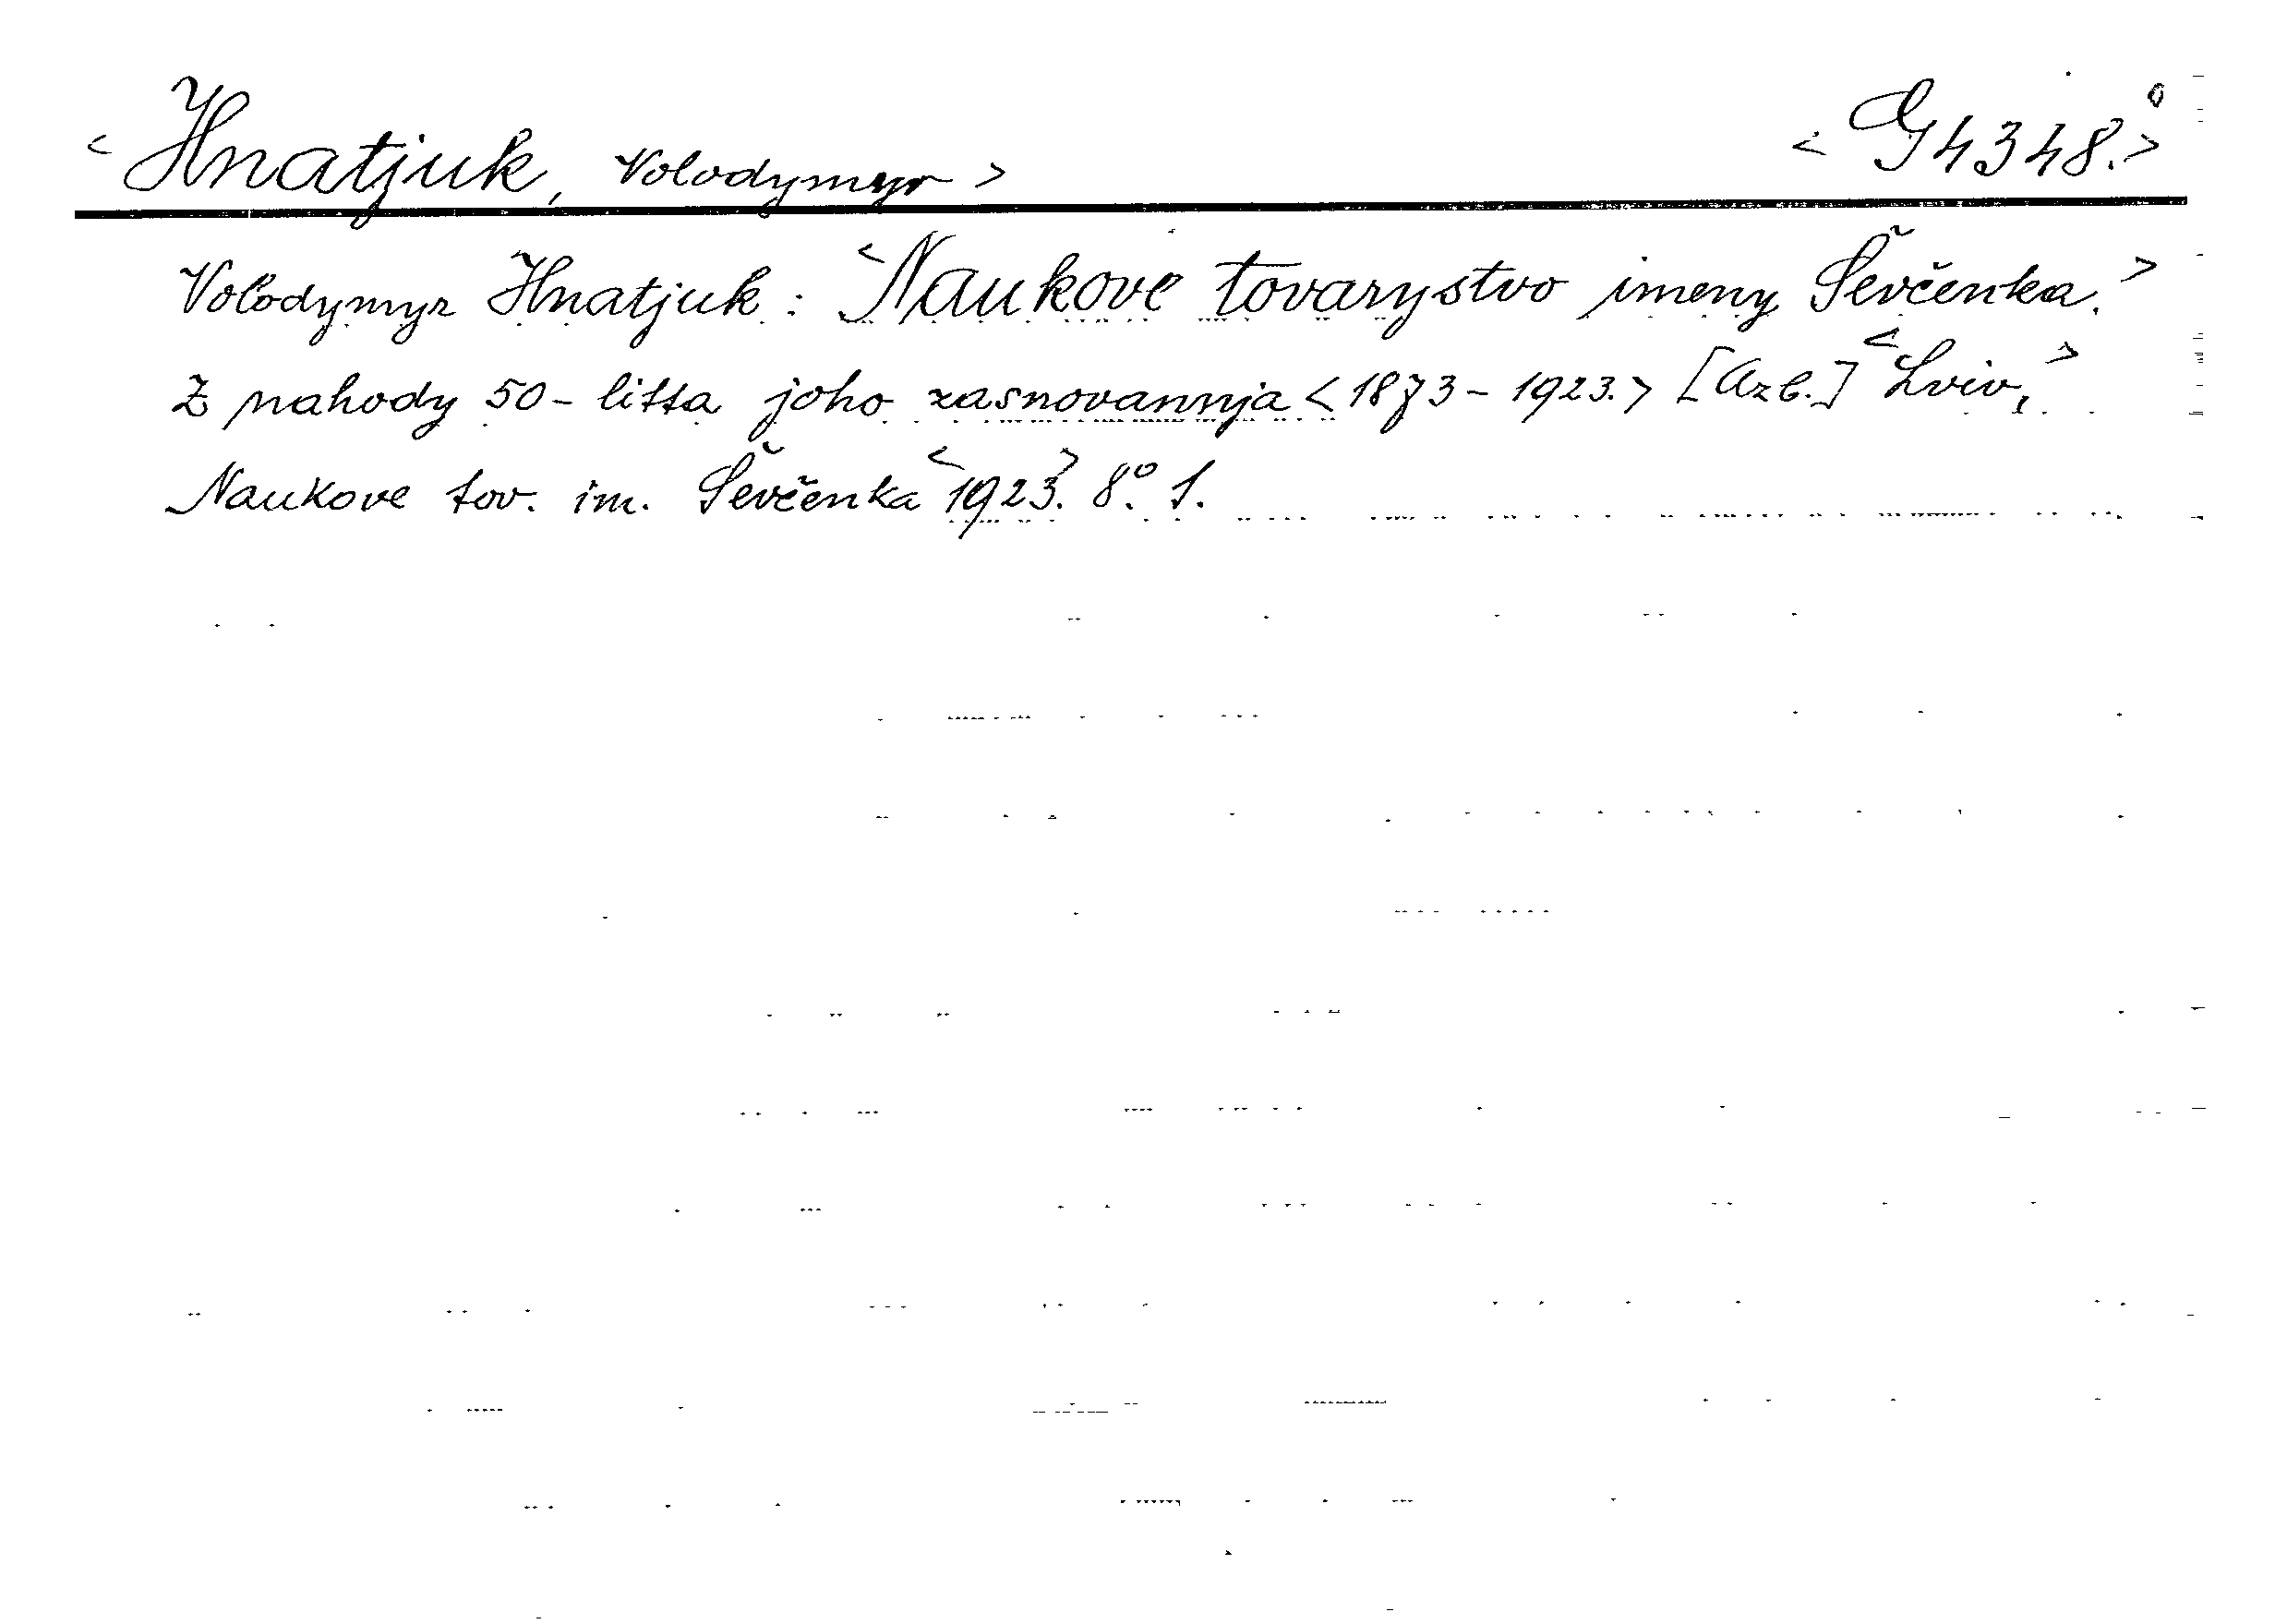 <Hnatjuk, Volodymyr> <G 4348.>
Volodymyr Hnatjuk: <Naukove tovarystvo imeny Ševčenka.>
Z nahody 50-litta joho zasnovannja <1873-1923.> [Azb.] <Lviv,>
Naukove tov. im. Ševčenka <1923.> 8° 1.